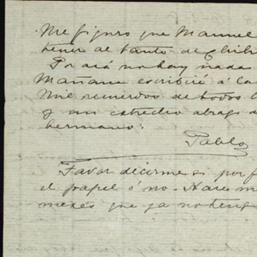 Me figuro que Manuel
tener al tanto de
Por acá no hay nada
Mañana escribiré á
Mil recuerdos de todos
y un estrecho abrazo
hermano:
Pablo
Favor decirme si por
el papel ó no. Hace
meses que ya no teng